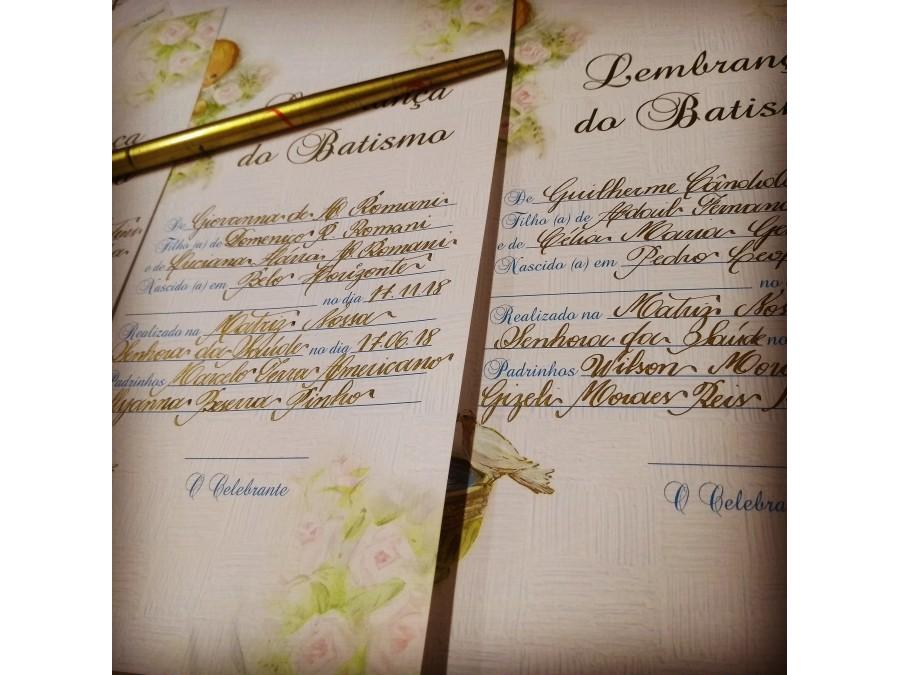 do Batismo
De Giovanna de M. Romani
Filho (a) de Domenico P. Romani
e de Luciana Maria M. Romani
Nascido (a) em Belo Horizonte
no dia 17.11.18
Realizado na Matriz Nossa
Senhora da Saúde no dia 17.06.18
Padrinhos Marcelo Terra Americano
Bezerra Pinho
O Celebrante
Lembranç
do Batis
De Guilherme Cândido
Filho (a) de Fernan
e de Célia Maria
Nascido (a) em Pedro Leop
no
Realizado na Matriz Nos
Senhora da Saúde no
Padrinhos Wilson
Gizeli Moraes Reis
O Celebra